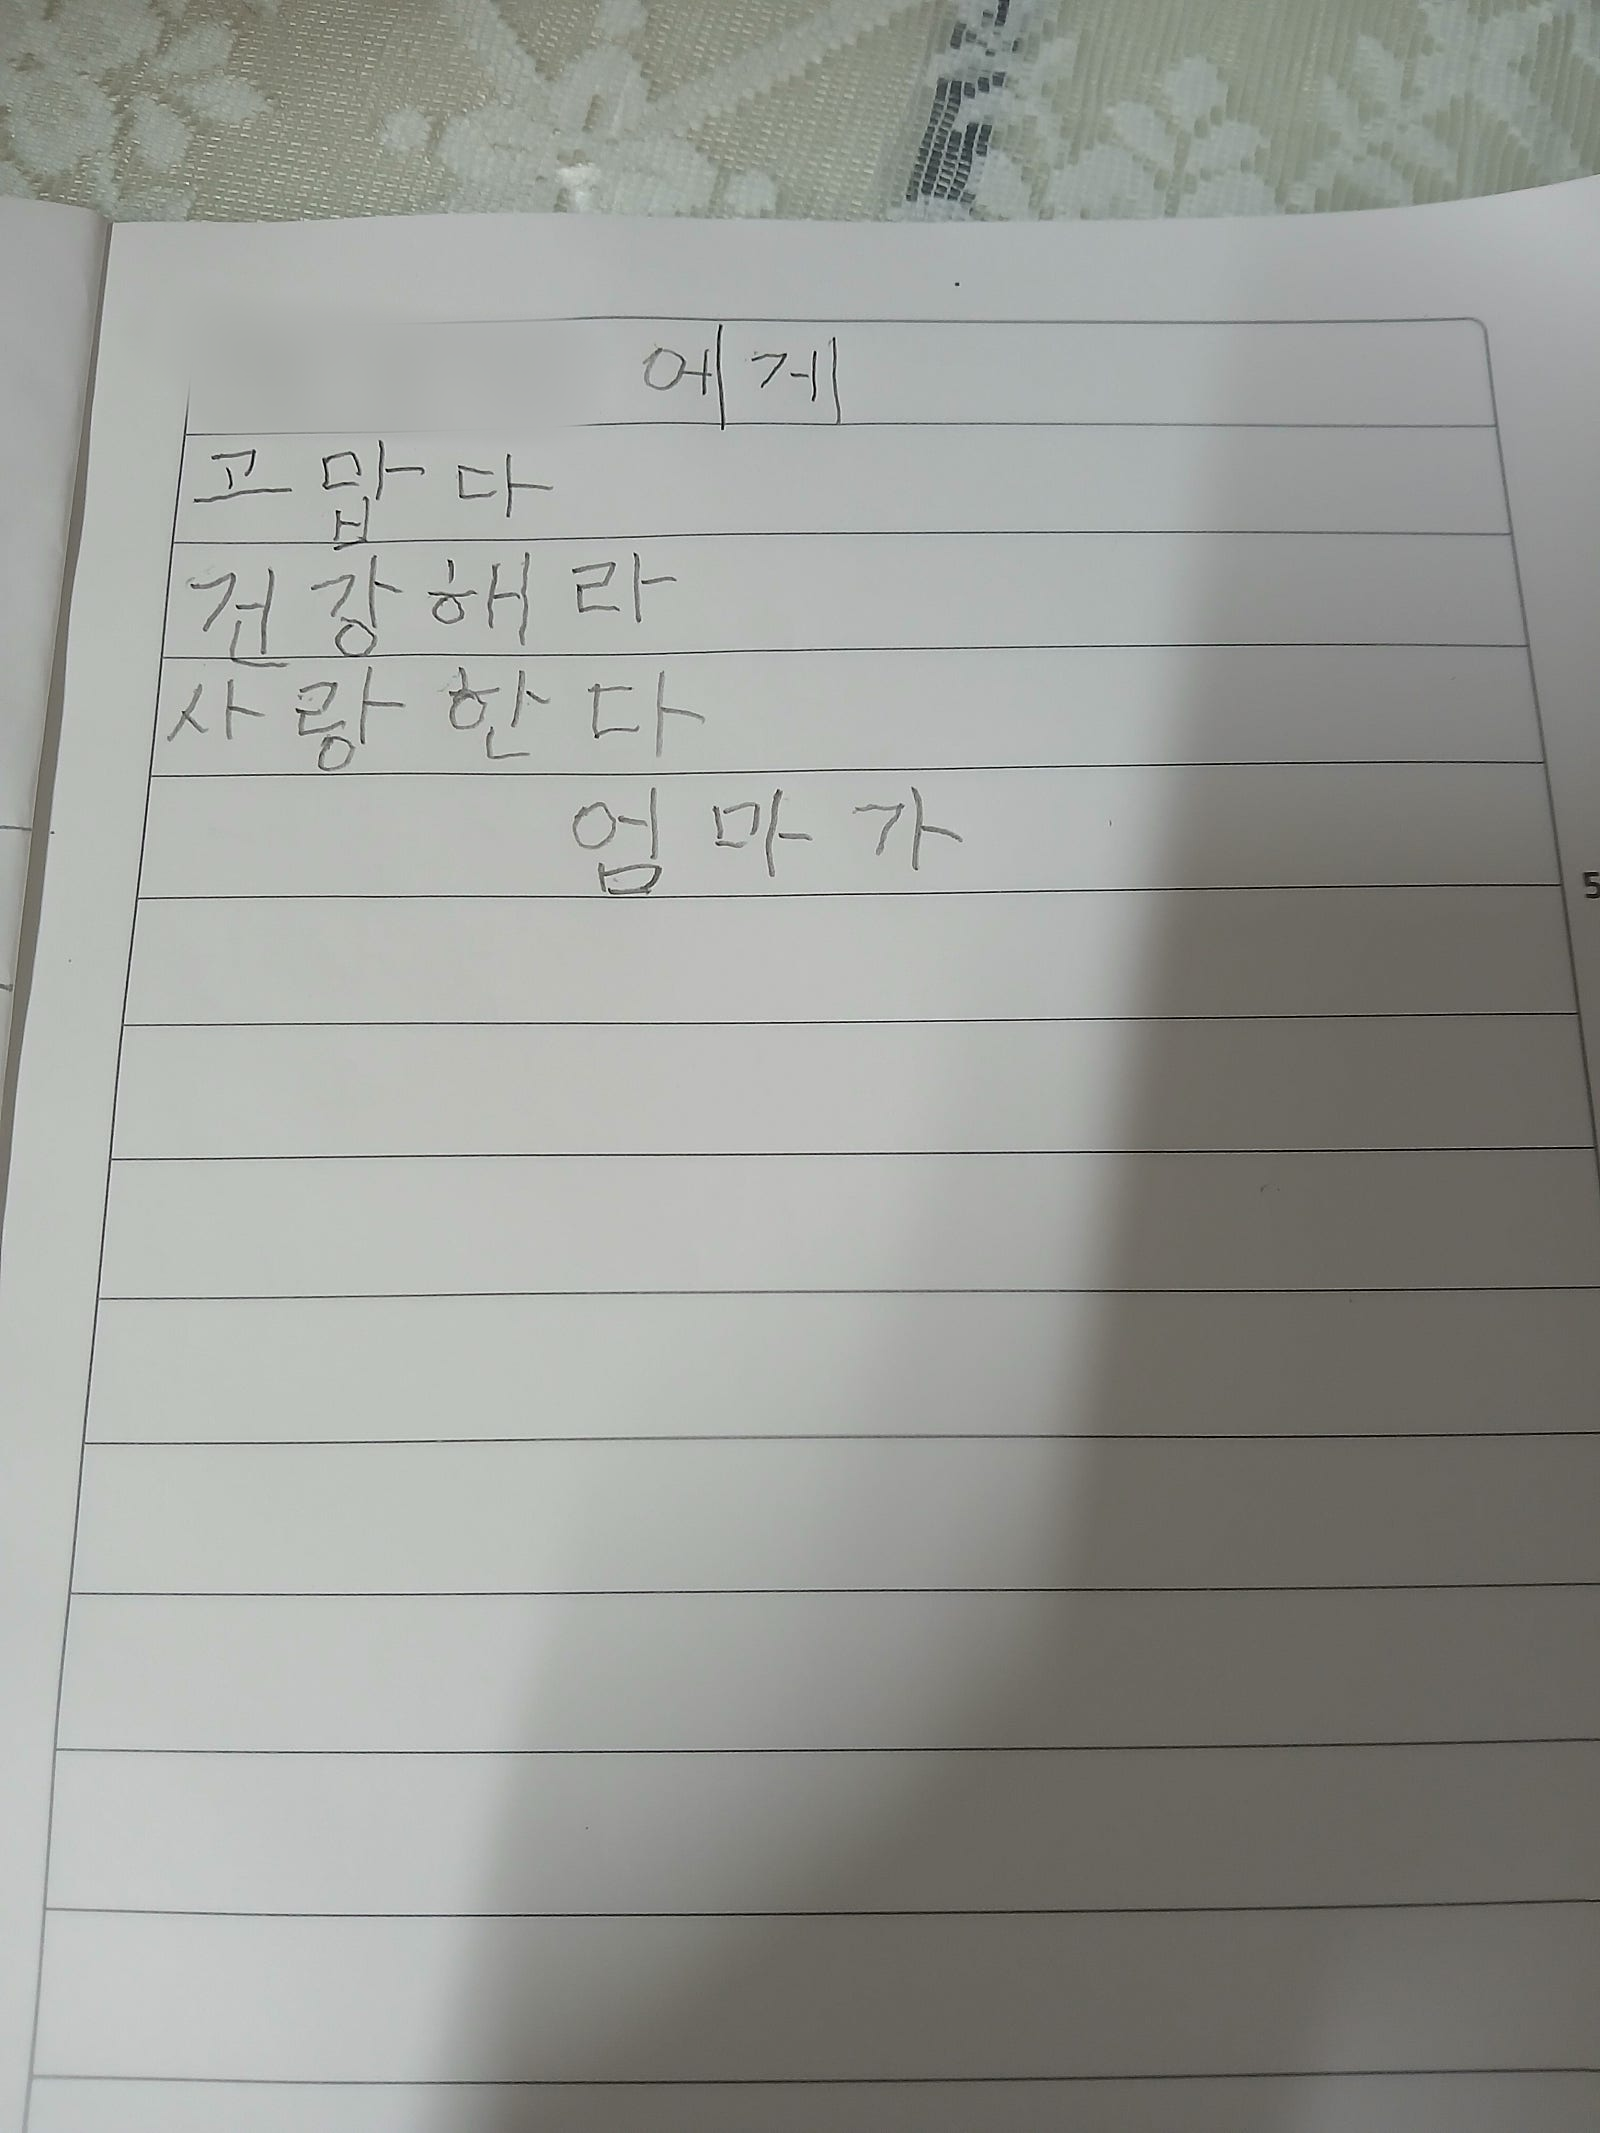 에게
고맙다
건강해라
사랑한다
엄마가
5